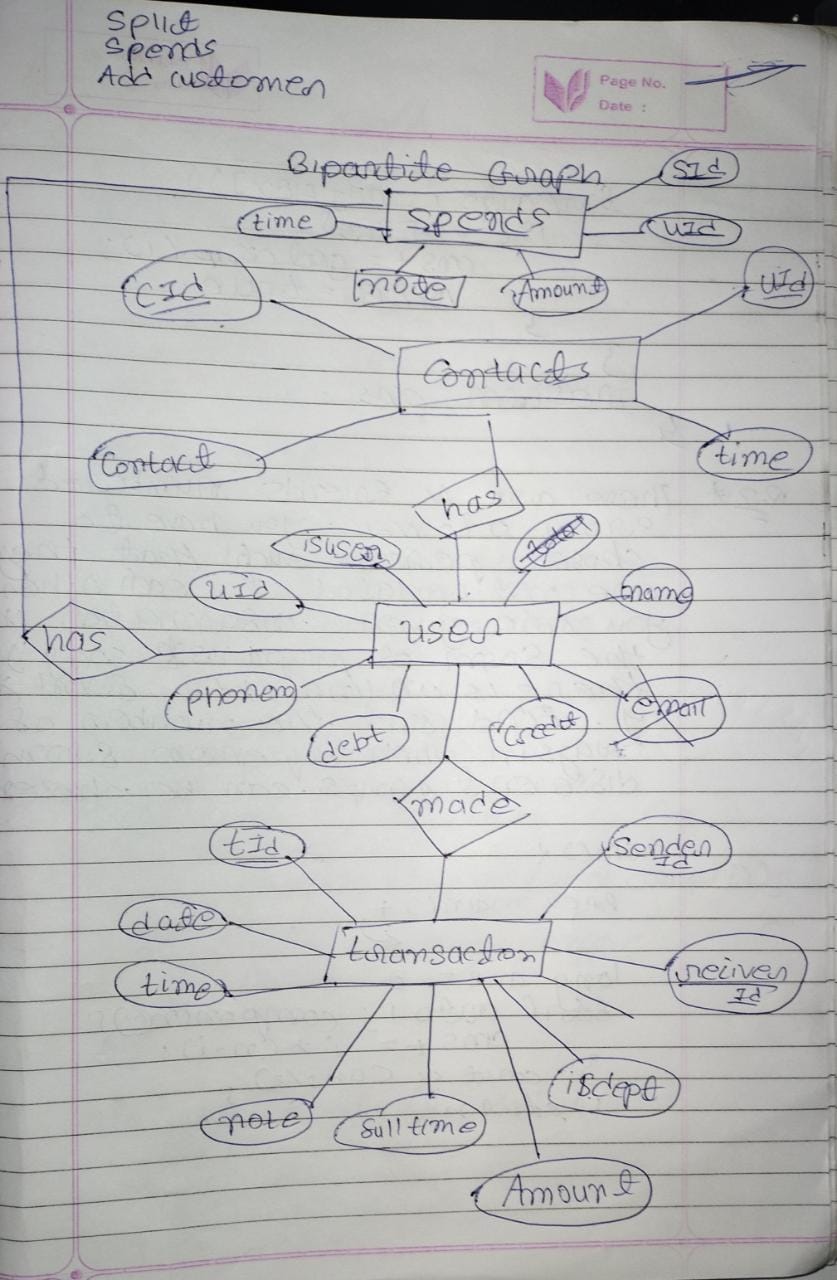 Split
Spends
Add customer
Page No.
Date :
Bipartite Graph
SId
time
Spends
UId
CId
note
Amount
UId
Contacts
Contact
time
has
isuser
UId
name
user
has
phonem
email
debt
Credit
made
tId
Sender
Id
date
transacton
reiiver
Id
time
isdept
note
fulltime
Amount